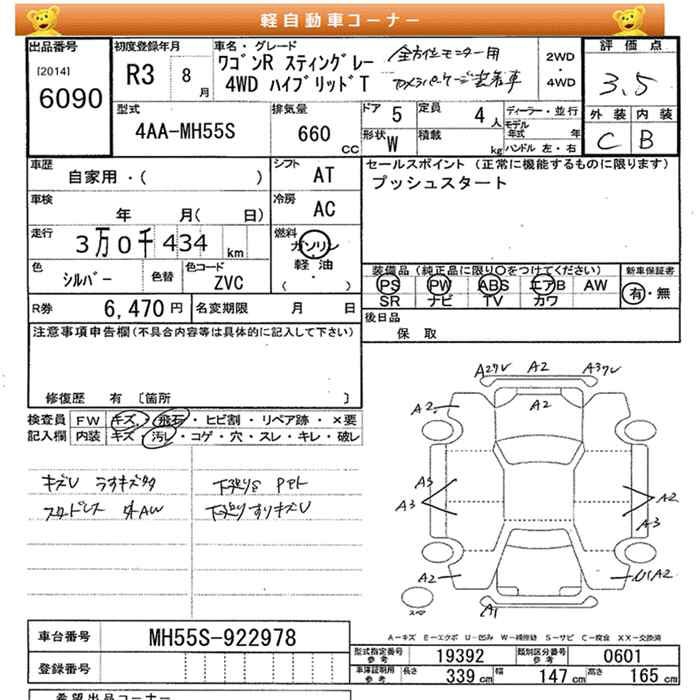 軽自動車コーナー
出品番号
[2014]
6090
初度登録年月
R3 8月
車名・グレード
ワゴンR スティングレー
4WD ハイブリッドT
全方位モニター用
カメラパッケージ装着車
2WD
・
4WD
評価点
3.5
外装 内装
C B
型式
4AA-MH55S
排気量
660 CC
ドア 5
定員 4人
形状 W
積載 kg
ディーラー・並行
モデル年式 年
ハンドル 左・右
車歴
自家用・( )
シフト
AT
車検
年 月( 日)
冷房
AC
走行
3万0千434 km
燃料
ガソリン
軽・油
( )
色
シルバー
色替
色コード
ZVC
R券 6,470円
名変期限 月 日
セールスポイント (正常に機能するものに限ります)
プッシュスタート
装備品(純正品に限り○をつけてください)
PS PW ABS エアB AW
SR ナビ TV カワ
新車保証書
有・無
後日品
保 取
注意事項申告欄(不具合内容等は具体的に記入して下さい)
修復歴 有 〔箇所 〕
検査員 FW キズ・飛石・ヒビ割・リペア跡・×要
記入欄 内装 キズ・汚レ・コゲ・穴・スレ・キレ・破レ
キズU
スタッドレス 外AW
下廻りS
下廻りすりキズU
A2 A2
A2
A2
A3
A3
A2
A3
A2
A1
A-キズ E-エクボ U-凹み W-補修跡 S-サビ C-腐食 XX-交換済
車台番号 MH55S-922978
登録番号
型式指定番号 参考 19392
類別区分番号 参考 0601
車庫証明用 参考 長さ 339cm 幅 147cm 高さ 165cm
希望出品コーナー